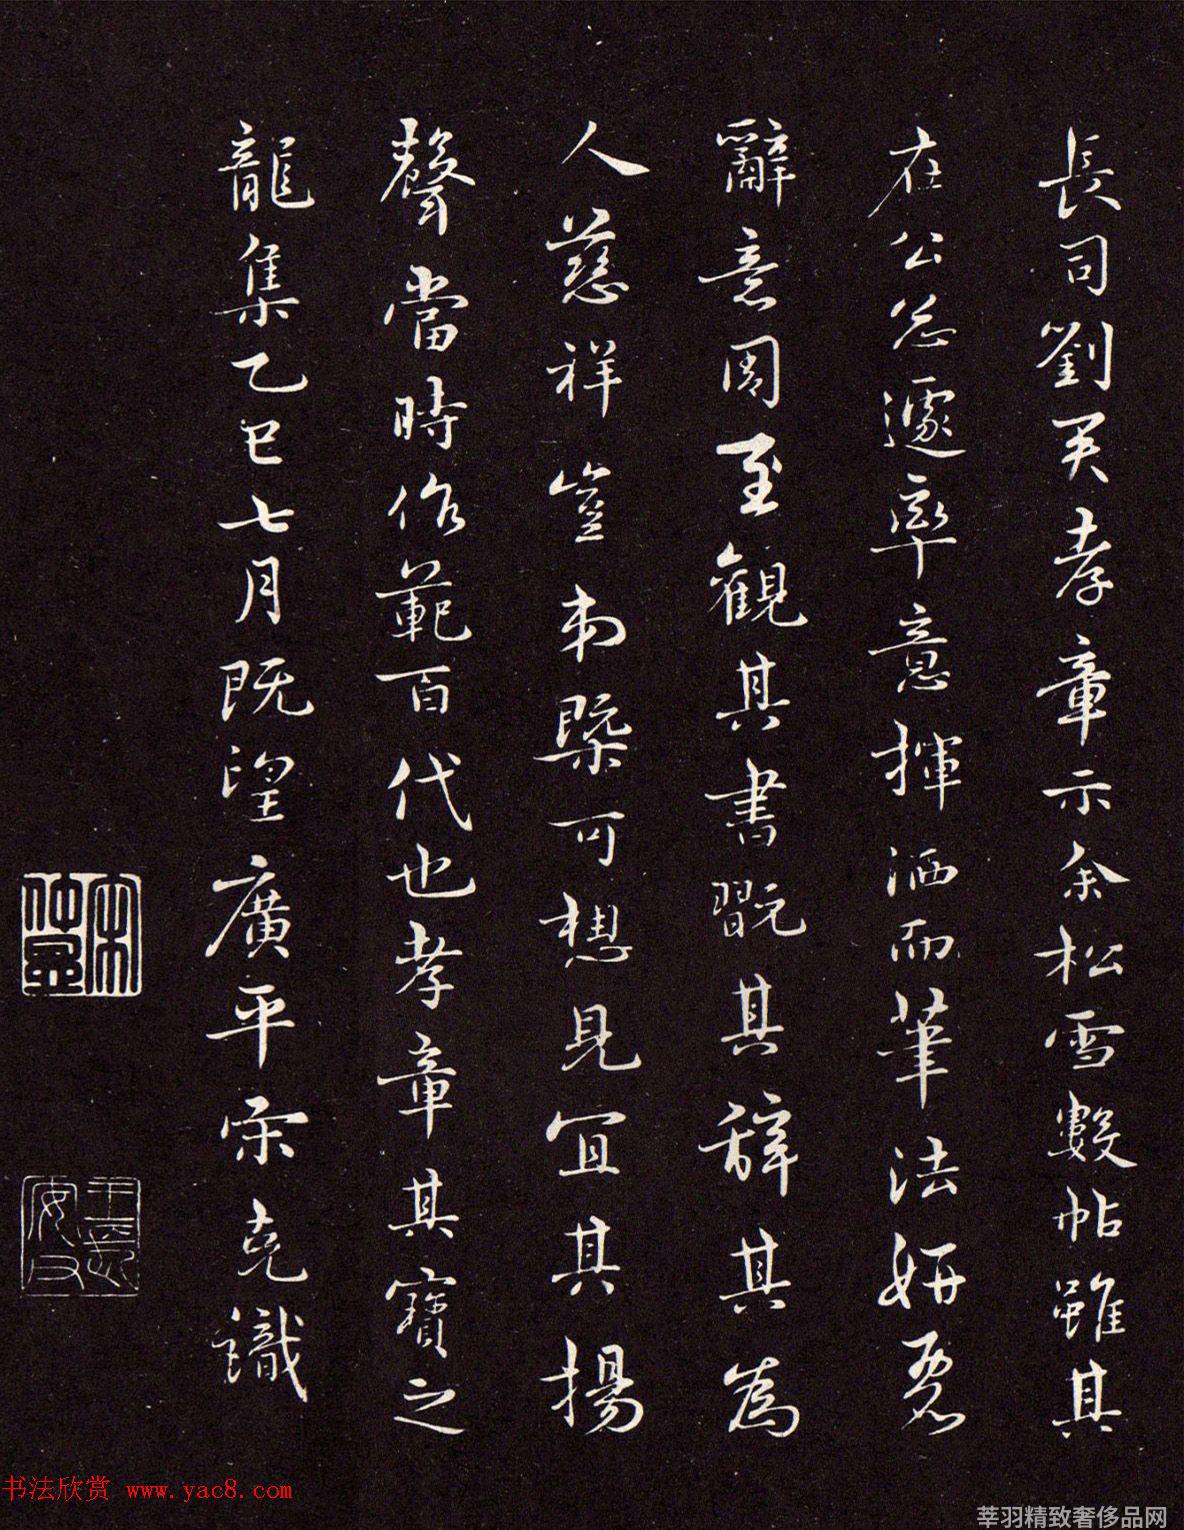 長司劉君孝章示余松雪數帖雖其
在公忩遽率意揮洒而筆法妍麗
辭意周至觀其書翫其辞其為
人慈祥豈弟槩可想見宜其揚
聲當時作範百代也孝章其寶之
龍集乙巳七月既望廣平宋克識
宋仲温
书法欣赏 www.yac8.com
莘羽精致奢侈品网